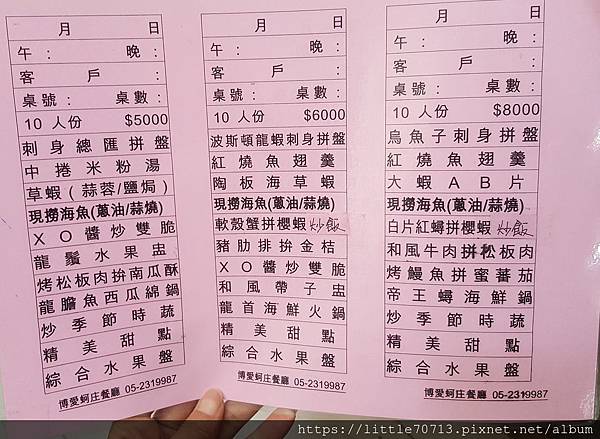 月 日
午： 晚：
客 戶：
桌號： 桌數：
10 人份 $5000
刺身總匯拼盤
中捲米粉湯
草蝦(蒜蓉/鹽焗)
現撈海魚(蔥油/蒜燒)
XO醬炒雙脆
龍鬚水果盅
烤松板肉拚南瓜酥
龍膽魚西瓜綿鍋
炒季節時蔬
精美甜點
綜合水果盤
博愛蚵庄餐廳 05-2319987
月 日
午： 晚：
客 戶：
桌號： 桌數：
10 人份 $6000
波斯頓龍蝦刺身拼盤
紅燒魚翅羹
陶板海草蝦
現撈海魚(蔥油/蒜燒)
軟殼蟹拼櫻蝦炒飯
豬肋排拚金桔
XO醬炒雙脆
和風帶子盅
龍首海鮮火鍋
精美甜點
綜合水果盤
博愛蚵庄餐廳 05-2319987
月 日
午： 晚：
客 戶：
桌號： 桌數：
10 人份 $8000
烏魚子刺身拼盤
紅燒魚翅羹
大蝦AB片
現撈海魚(蔥油/蒜燒)
白片紅蟳拼櫻蝦炒飯
和風牛肉拼松板肉
烤鰻魚拼蜜蕃茄
帝王蟳海鮮鍋
炒季節時蔬
精美甜點
綜合水果盤
博愛蚵庄餐廳 05-2319987
https://little70713.pixnet.net/album